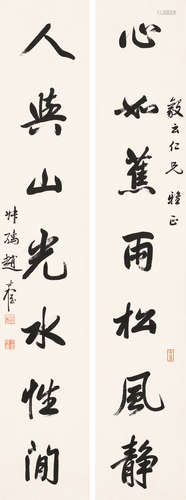 心如蕉雨松風靜
毅云仁兄雅正
人與山光水性閒
叔孺趙